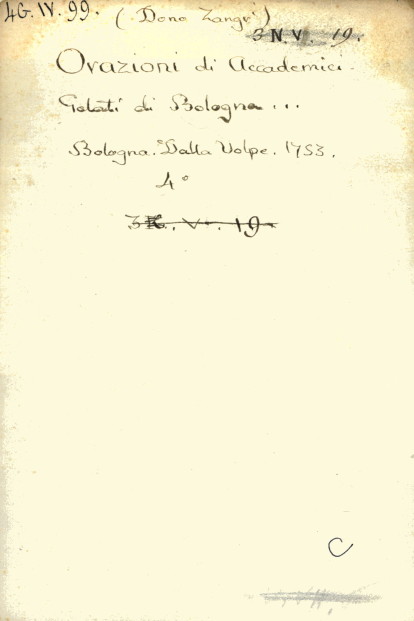 4G. IV. 99. (Dono Zangrì)
3 N. V. 19.
Orazioni di Accademici
Gelati di Bologna ...
Bologna. Dalla Volpe. 1753.
4°
3 K. V. 19
C